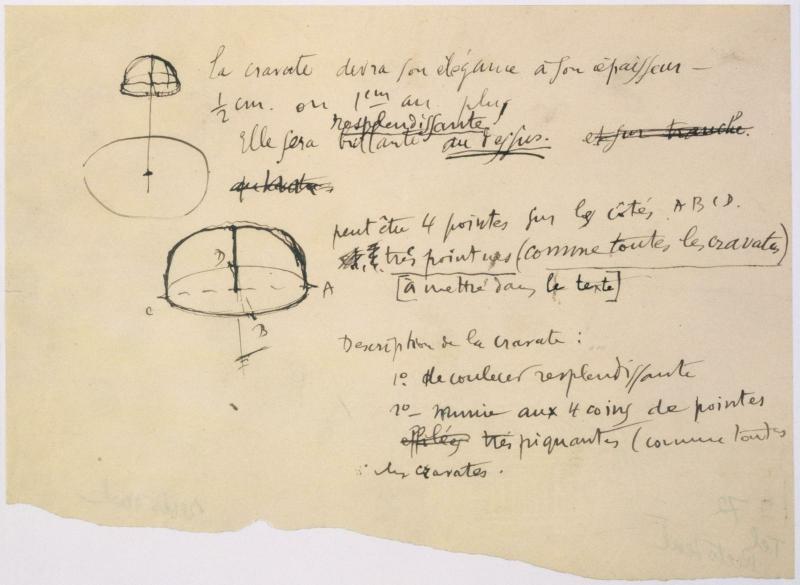 La cravate devra son élégance à son épaisseur –
½ cm. ou 1cm au plus
resplendissante
Elle sera brillante au dessus. et sur tranche.
peut être 4 pointes sur les côtés ABCD.
très pointues (comme toutes les cravates)
[à mettre dans le texte]
D
A
C
B
Description de la cravate :
1º de couleur resplendissante
2º – munie aux 4 coins de pointes
effilées très piquantes (comme toutes
les cravates.